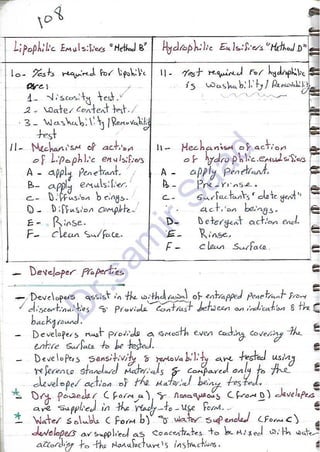 108
Lipophilic Emulsifiers "Method B"
Hydrophilic Emulsifiers "Method D"
10- Tests required for lipohilic
are:
1- Viscosity test.
2- Water Content test.
3- Washability / Removability
test
11- Mechanism of action
of Lipophilic emulsifiers
A- apply Penetrant.
B- apply emulsifier.
C- Diffusion beings.
D- Diffusion Complete.
E- Rinse.
F- clean Surface.
11- Test required For hydrophilic
is Washability / Removability
11- Mechanism of action
of hydrophilic emulsifiers
A- apply Penetrant.
B- Pre-rinse.
C- Surfactants "detergent"
action beings.
D- Detergent action end.
E- Rinse.
F- clean Surface.
- Developer Properties
- Developers assist in the withdrawal of entrapped Penetrant From
discontinuities & Provide Contrast between an indication & the
background.
- Developers must provide a smooth even coating covering the
entire Surface to be tested.
- Developers Sensitivity & removability are tested using
reference standard Materials & compared only to the
developer action of the Material being tested.
* Dry Powder (Form a), & nonaqueous (From D) developers
are Supplied in the ready-to-use Form.
* Water Soluble (Form b) & water Supended (Form C)
developers ar supplied as Concentrates to be Mixed with water
according to the Manufacture's instructions.
Dr. Samir Saad